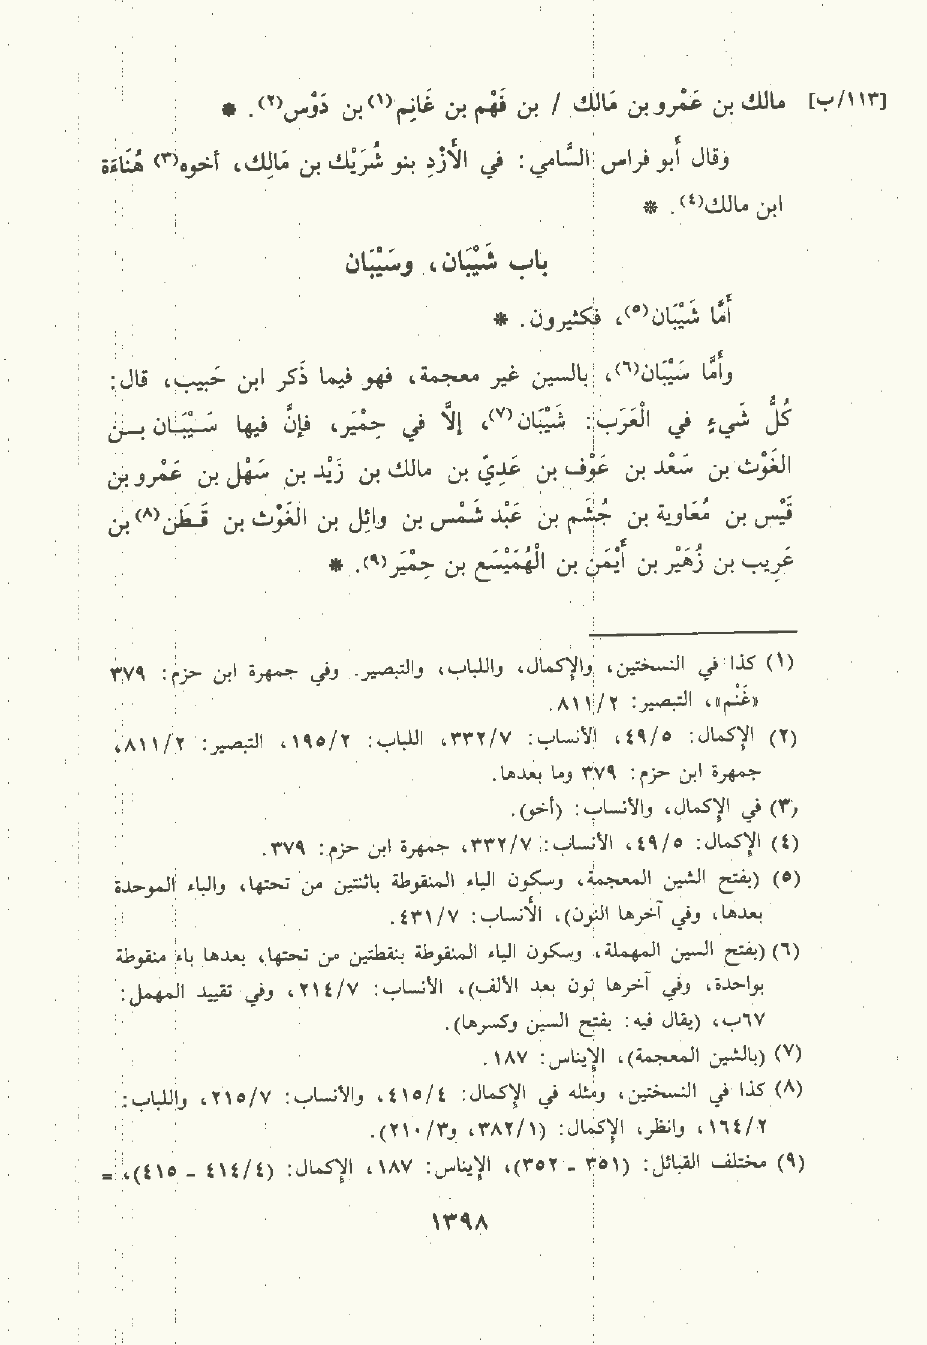 [١١٣/ب] مالك بن عَمْرو بن مَالك / بن فَهْم بن غَانِم(١) بن دَوْس(٢). *
وقال أَبو فراس السَّامي: في الأَزْدِ بنو شُرَيْك بن مَالِك، أخوه(٣) هُنَاءَة
ابن مالك(٤). *
باب شَيْبَان، وسَيْبَان
أَمَّا شَيْبَان(٥)، فكثيرون. *
وأَمَّا سَيْبَان(٦)، بالسين غير معجمة، فهو فيما ذَكر ابن حَبيب، قال:
كُلُّ شَيءٍ في الْعَرَب: شَيْبَان(٧)، إلاَّ في حِمْيَر، فإنَّ فيها سَـيْبَـان بــن
الغَوْث بن سَعْد بن عَوْف بن عَدِيّ بن مالك بن زَيْد بن سَهْل بن عَمْرو بن
قَيْس بن مُعَاوية بن جُشَم بن عَبْد شَمْس بن وائِل بن الغَوْث بن قَـطَن(٨) بن
عَرِيب بن زُهَيْر بن أَيْمَن بن الْهُمَيْسَع بن حِمْيَر(٩). *
(١) كذا في النسختين، والإكمال، واللباب، والتبصير. وفي جمهرة ابن حزم: ٣٧٩
«غَنْم»، التبصير: ٨١١/٢.
(٢) الإكمال: ٤٩/٥، الأنساب: ٣٣٢/٧، اللباب: ١٩٥/٢، التبصير: ٨١١/٢،
جمهرة ابن حزم: ٣٧٩ وما بعدها.
(٣) في الإكمال، والأنساب: (أخو).
(٤) الإكمال: ٤٩/٥، الأنساب: ٣٣٢/٧، جمهرة ابن حزم: ٣٧٩.
(٥) (بفتح الشين المعجمة، وسكون الياء المنقوطة باثنتين من تحتها، والباء الموحدة
بعدها، وفي آخرها النون)، الأنساب: ٤٣١/٧.
(٦) (بفتح السين المهملة، وسكون الياء المنقوطة بنقطتين من تحتها، بعدها باء منقوطة
بواحدة، وفي آخرها نون بعد الألف)، الأنساب: ٢١٤/٧، وفي تقييد المهمل:
٦٧ب، (يقال فيه: بفتح السين وكسرها).
(٧) (بالشين المعجمة)، الإيناس: ١٨٧.
(٨) كذا في النسختين، ومثله في الإكمال: ٤١٥/٤، والأنساب: ٢١٥/٧، واللباب:
١٦٤/٢، وانظر، الإكمال: (٣٨٢/١، و٢١٠/٣).
(٩) مختلف القبائل: (٣٥١ - ٣٥٢)، الإيناس: ١٨٧، الإكمال: (٤١٤/٤ - ٤١٥)، =
١٣٩٨